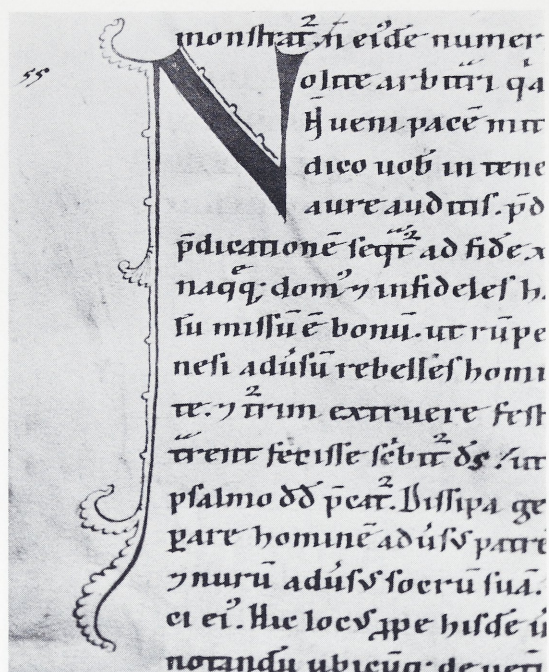 55
monstrat᷑. ñ eiꝰdē numer
Nolite arbitᷓri qͣ
Ñ ueni pacē mitt
dico uob̄ in tene
aure auditis. p̄d
p̄dicationē seqͣt᷑ ad fidē x
naqͣqꝫ domꝰ ⁊ infideles h
su missū ē bonū. ut rūpe
nesi adu̓sū rebelles homi
te. ⁊ t᷑rim extruere fest
tᷓrent fecisse sc̄bit᷑ ds̄. / ut
psalmo dd̄ p̄cat᷑. Dissipa ge
ꝑare hominē adu̓sꝰ patrē
⁊ nurū adu̓sꝰ socrū suā.
ci eiꝰ. Hic locꝰ ꝓpe hisdē u̓
notandū ubicūqꝫ de ueti